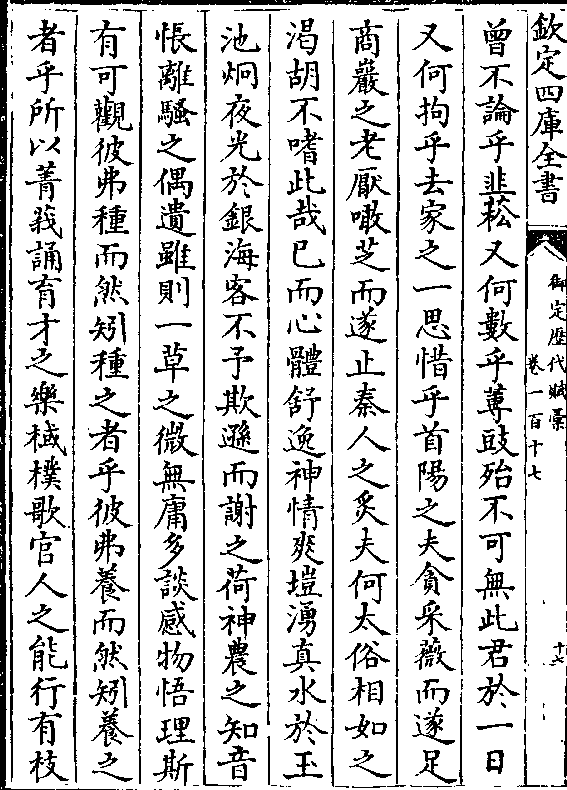 欽定四庫全書
御定歷代賦彙
卷一百十七
十七
曾不論乎韭菘又何數乎蓴豉殆不可無此君於一日
又何拘乎去家之一思惜乎首陽之夫貪采薇而遂足
商巖之老厭噉芝而遂止秦人之炙夫何太俗相如之
渴胡不嗜此哉已而心體舒逸神情爽塏湧真水於玉
池炯夜光於銀海客不予欺遜而謝之荷神農之知音
悵離騷之偶遺雖則一草之微無庸多談感物悟理斯
有可觀彼弗種而然矧種之者乎彼弗養而然矧養之
者乎所以菁莪誦育才之樂棫樸歌官人之能行有枝